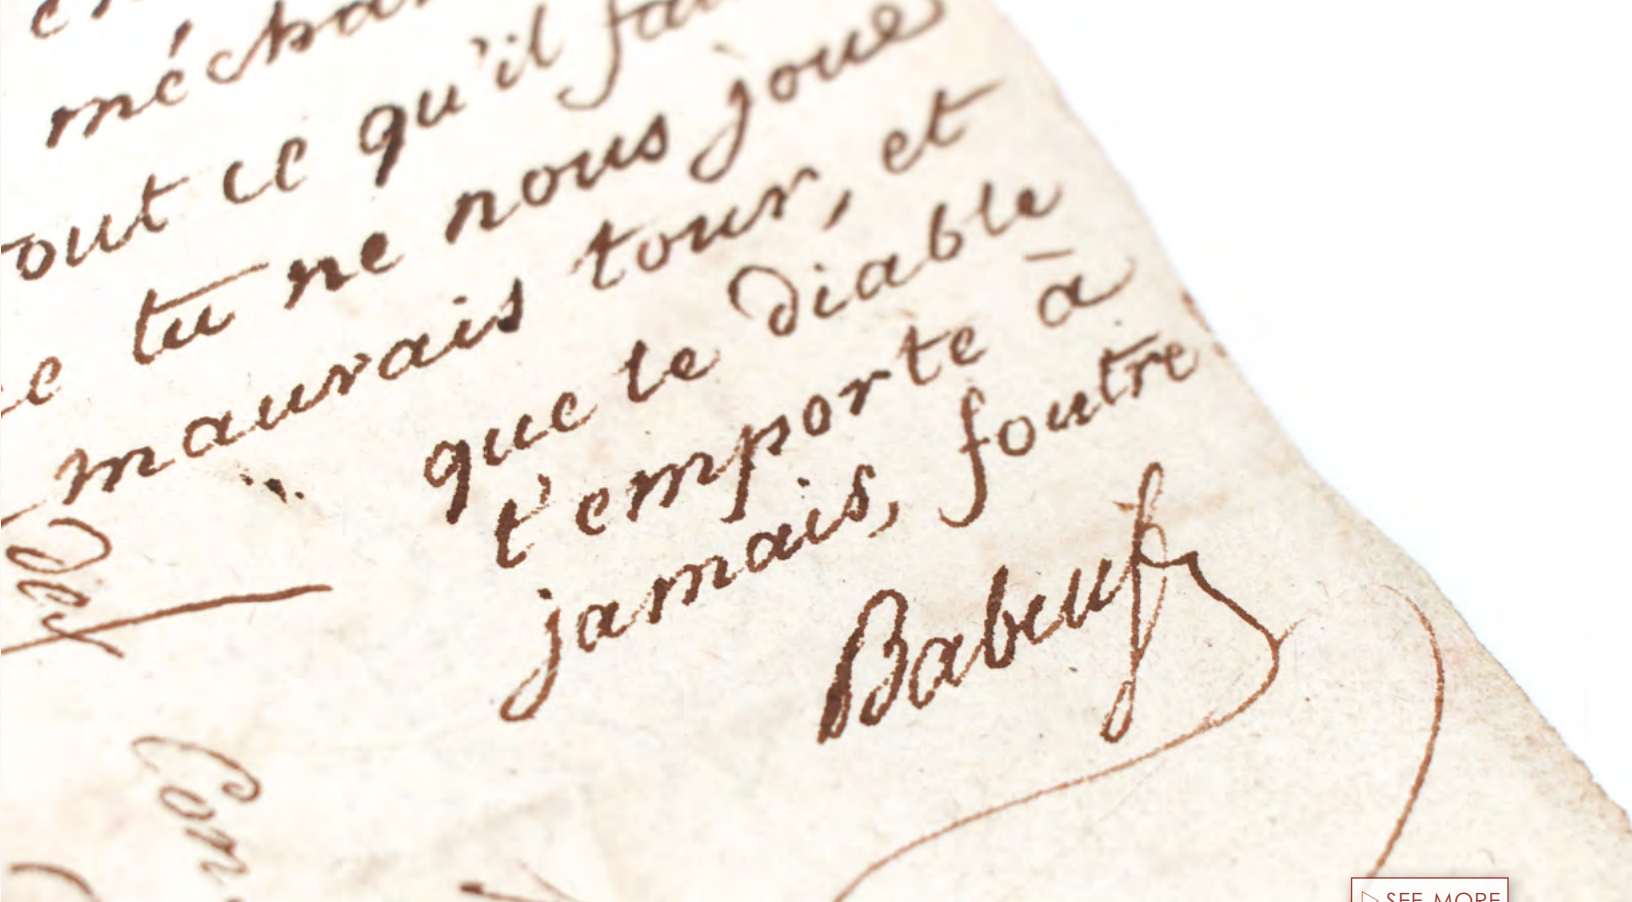 mécha
out ce qu'il fau
tu ne nous joue
mauvais tour, et
que le diable
t'emporte à
jamais, foutre
Babeuf
Con
SEE MORE